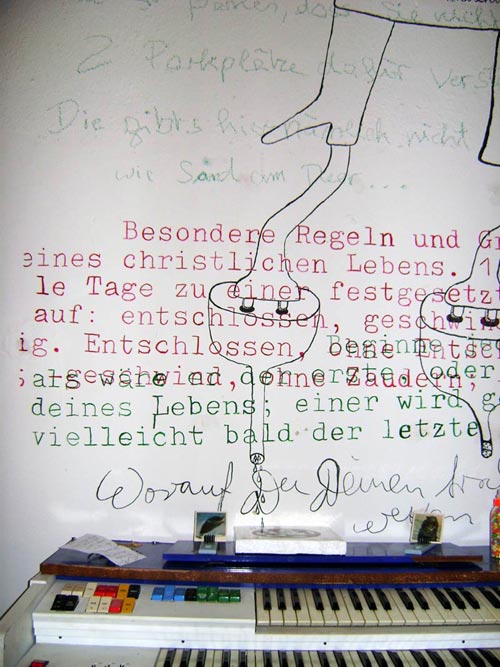 zu parken, daß Sie nicht
2 Parkplätze dafür
Die gibt's hier nämlich nicht
wie Sand am Meer...
Besondere Regeln und
eines christlichen Lebens.
le Tage zu einer festgesetz
auf: entschlossen, geschwin
ig. Entschlossen, ohne
Beginne
; geschwind, ohne Zaudern;
als wäre er der erste oder
deines Lebens; einer wird
vielleicht bald der letzte
Worauf Du Deinen